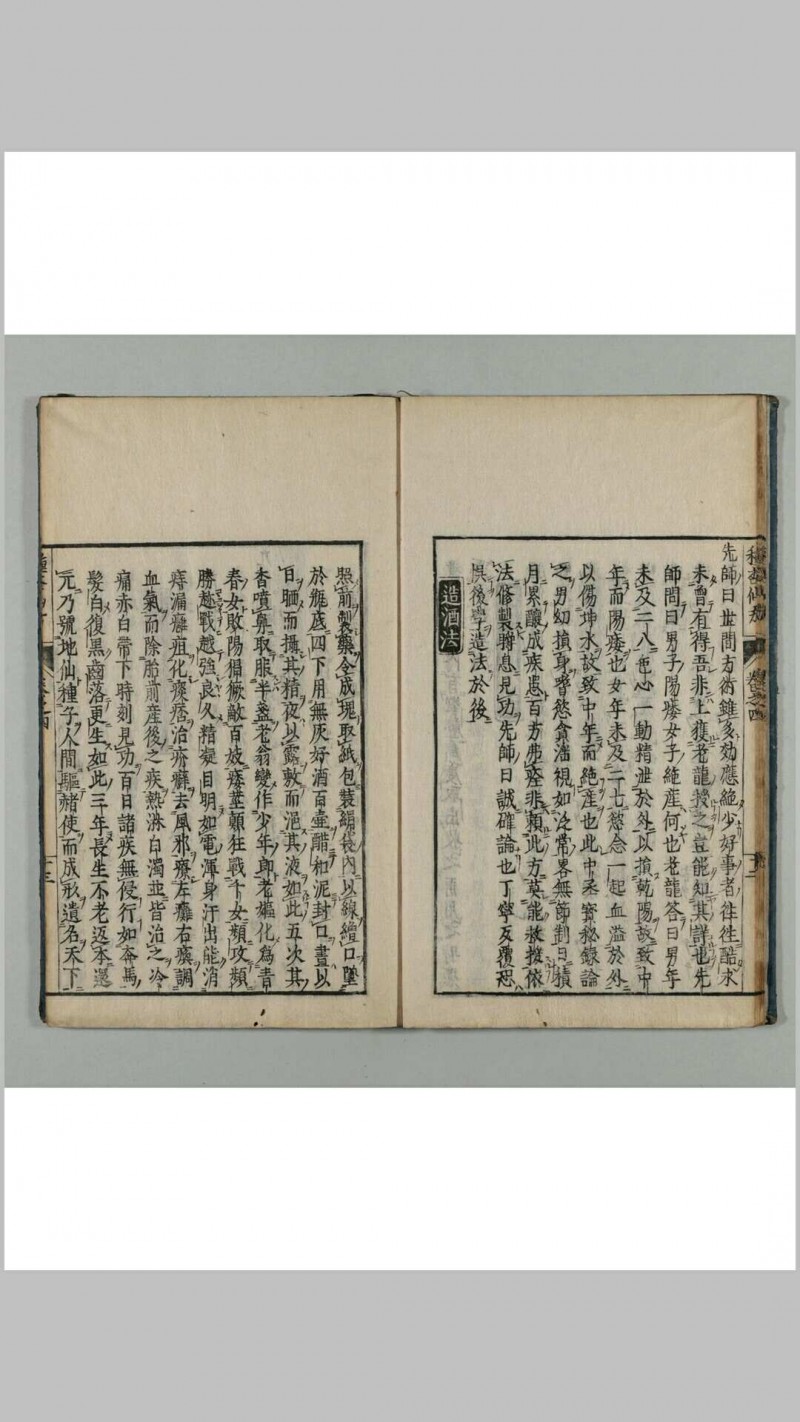 種杏仙方 卷之四 十二
先師曰世間方術雖多効應絶少好事者徃徃酷求
未曾有得吾非上獲老龍授之豈能知其詳也先
師問曰男子陽痿女子絶産何也老龍答曰男年
未及二八色心一動精泄於外以損乾陽故致中
年而陽痿也女年未及二七慾念一起血溢於外
以傷坤水故致中年而絶産也此中丞寳秘録論
之男幼損身嗜慾貪滛視如泛常畧無節制日積
月累釀成疾患百方弗瘥非頼此方莫能救拯依
法修製瞬息見功先師曰誠確論也丁寧反覆恐
悞後學造法於後
造酒法
照前製藥令成塊取紙包裝絹袋內以線繒口墜
於甁底四下用無灰好酒百壷醋和泥封口晝以
日晒而攝其精夜以露敷而浥其液如此五次其
香噴鼻取服半盞老翁變作少年卽老嫗化為青
春女敗陽猖獗敵百妓痿莖顛狂戰十女類攻類
勝越戰越強良久精凝目明如電渾身汗出能消
痔漏癰疽化瘰㾀治疥癬去風邪療左癱右瘓調
血氣而除胎前産後之疾熱淋白濁並皆治之冷
痛赤白帶下時刻見功百日諸疾無侵行如奔馬
髮白復黒齒落更生如此三年長生不老返本還
元乃號地仙種子人間驅赭使而成形遺名天下
卷之四 十三